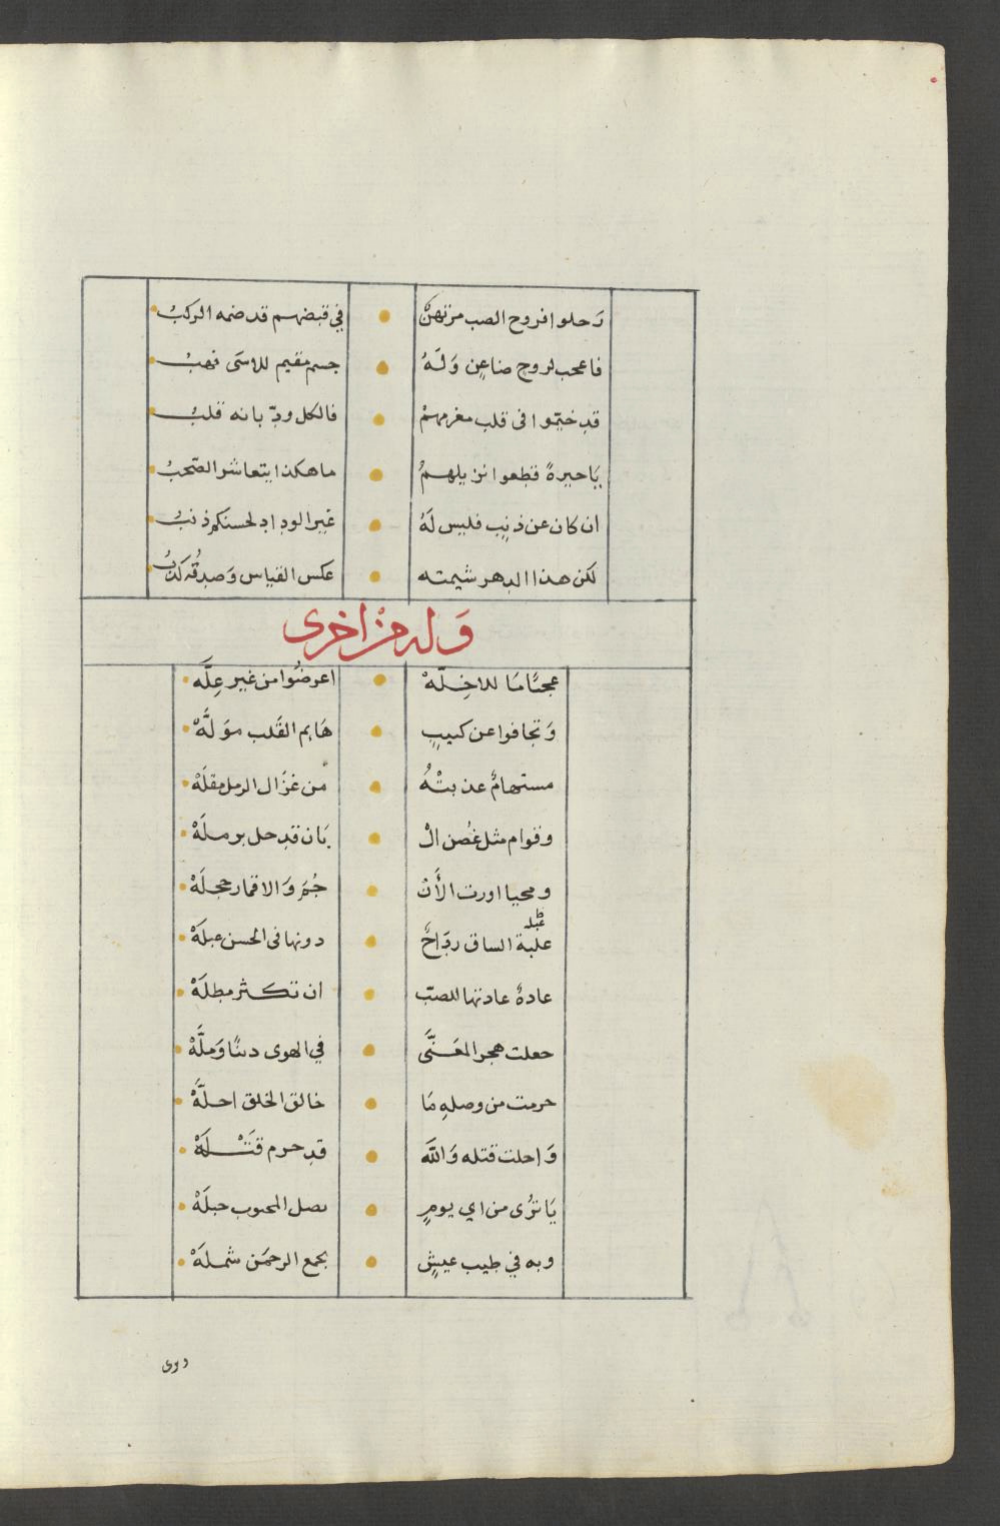 رَحلوا فروح الصب مرتهنٌ في قبضهم قد ضمه الركبُ
فاعجب لروح ضاعن وَلَهُ جسم مقيم للاسَى نهبُ
قد خيّموا فى قلب مغرمهمْ فالكل ودّ بانه قلبُ
يَا حيرةً قطعوا نزيلهمُ ما هكذا يتعاشر الصّحبُ
ان كان عن ذنبٍ فليس لَهُ غير الوداد لحسنكم ذنبُ
لكن هذا الدهر شيمته عكس القياس وَصدقُه كذبُ
وَله من اخرى
عجبًا مَا للاخِلّهْ اعرضُوا من غير عِلَّه
وَتجافوا عن كيبٍ هَايم القَلب موَلَّهْ
مستهامٌ عذبتْهُ من غزَال الرمل مقلَهْ
وقوام مثل غُصن الْ بَان قد حل برملَهْ
ومحيا اورت الأَنْ جُمَ وَالاقمار خجلَهْ
عبلة
علبة الساق ردَاحٌ دونها فى الحسن عبلَهْ
عادةٌ عادتها للصبّ ان تكثر مطلَهْ
جعلت هجر المعَنَّى في الهوى دينًا وَملَّهْ
حرمت من وصلهِ مَا خالق الخلق احلَّهْ
وَاحلت قتله وَاللَّه قد حرم قَتْلَهْ
يَا تُرى من اي يومٍ يصل المحبوب حبلَهْ
وبه في طيب عيشٍ يجمع الرحمَن شملَهْ